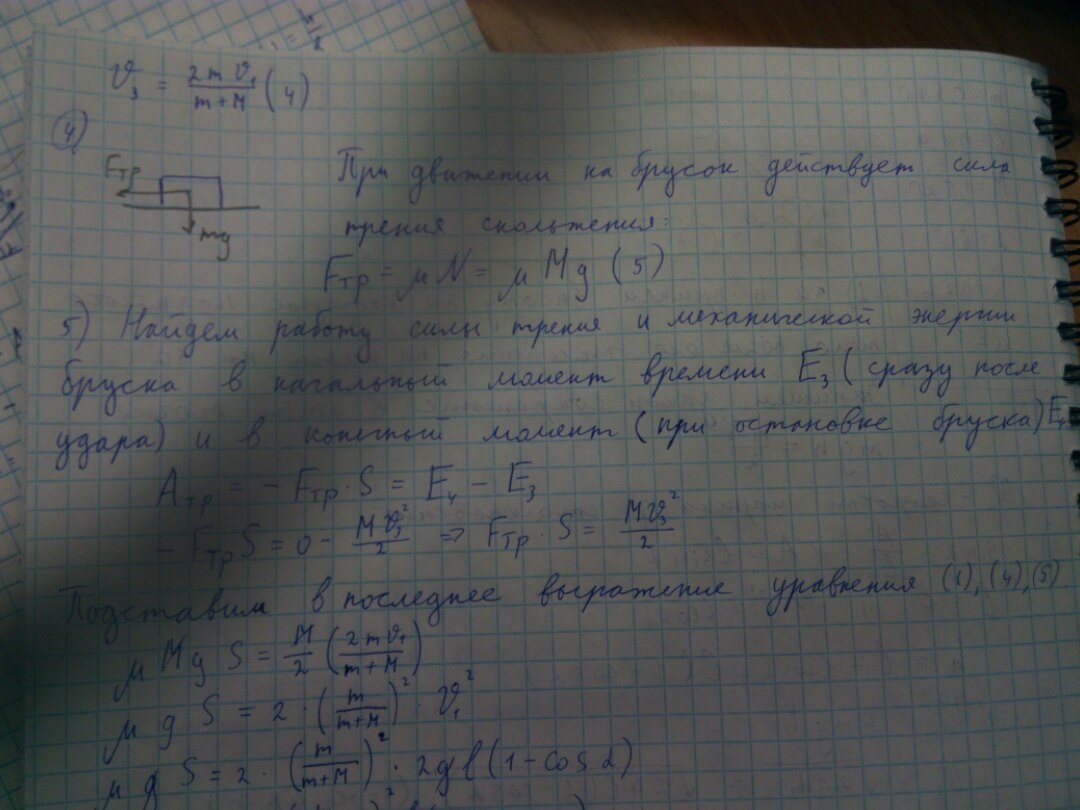 ϑ₃ = 2mϑ₁/(m+M) (4)
4)
Fтр
mg
При движении на брусок действует сила
трения скольжения:
Fтр = μN = μMg (5)
5) Найдем работу силы трения и механической энергии
бруска в начальный момент времени E₃ (сразу после
удара) и в конечный момент (при остановке бруска) E₄
Aтр = - Fтр·S = E₄ - E₃
- FтрS = 0 - Mϑ₃²/2 => Fтр·S = Mϑ₃²/2
Подставим в последнее выражение уравнения (1), (4), (5)
μMg S = M/2 (2mϑ₁/(m+M))²
μg S = 2·(m/(m+M))²·ϑ₁²
μg S = 2·(m/(m+M))²·2gl(1-cosα)